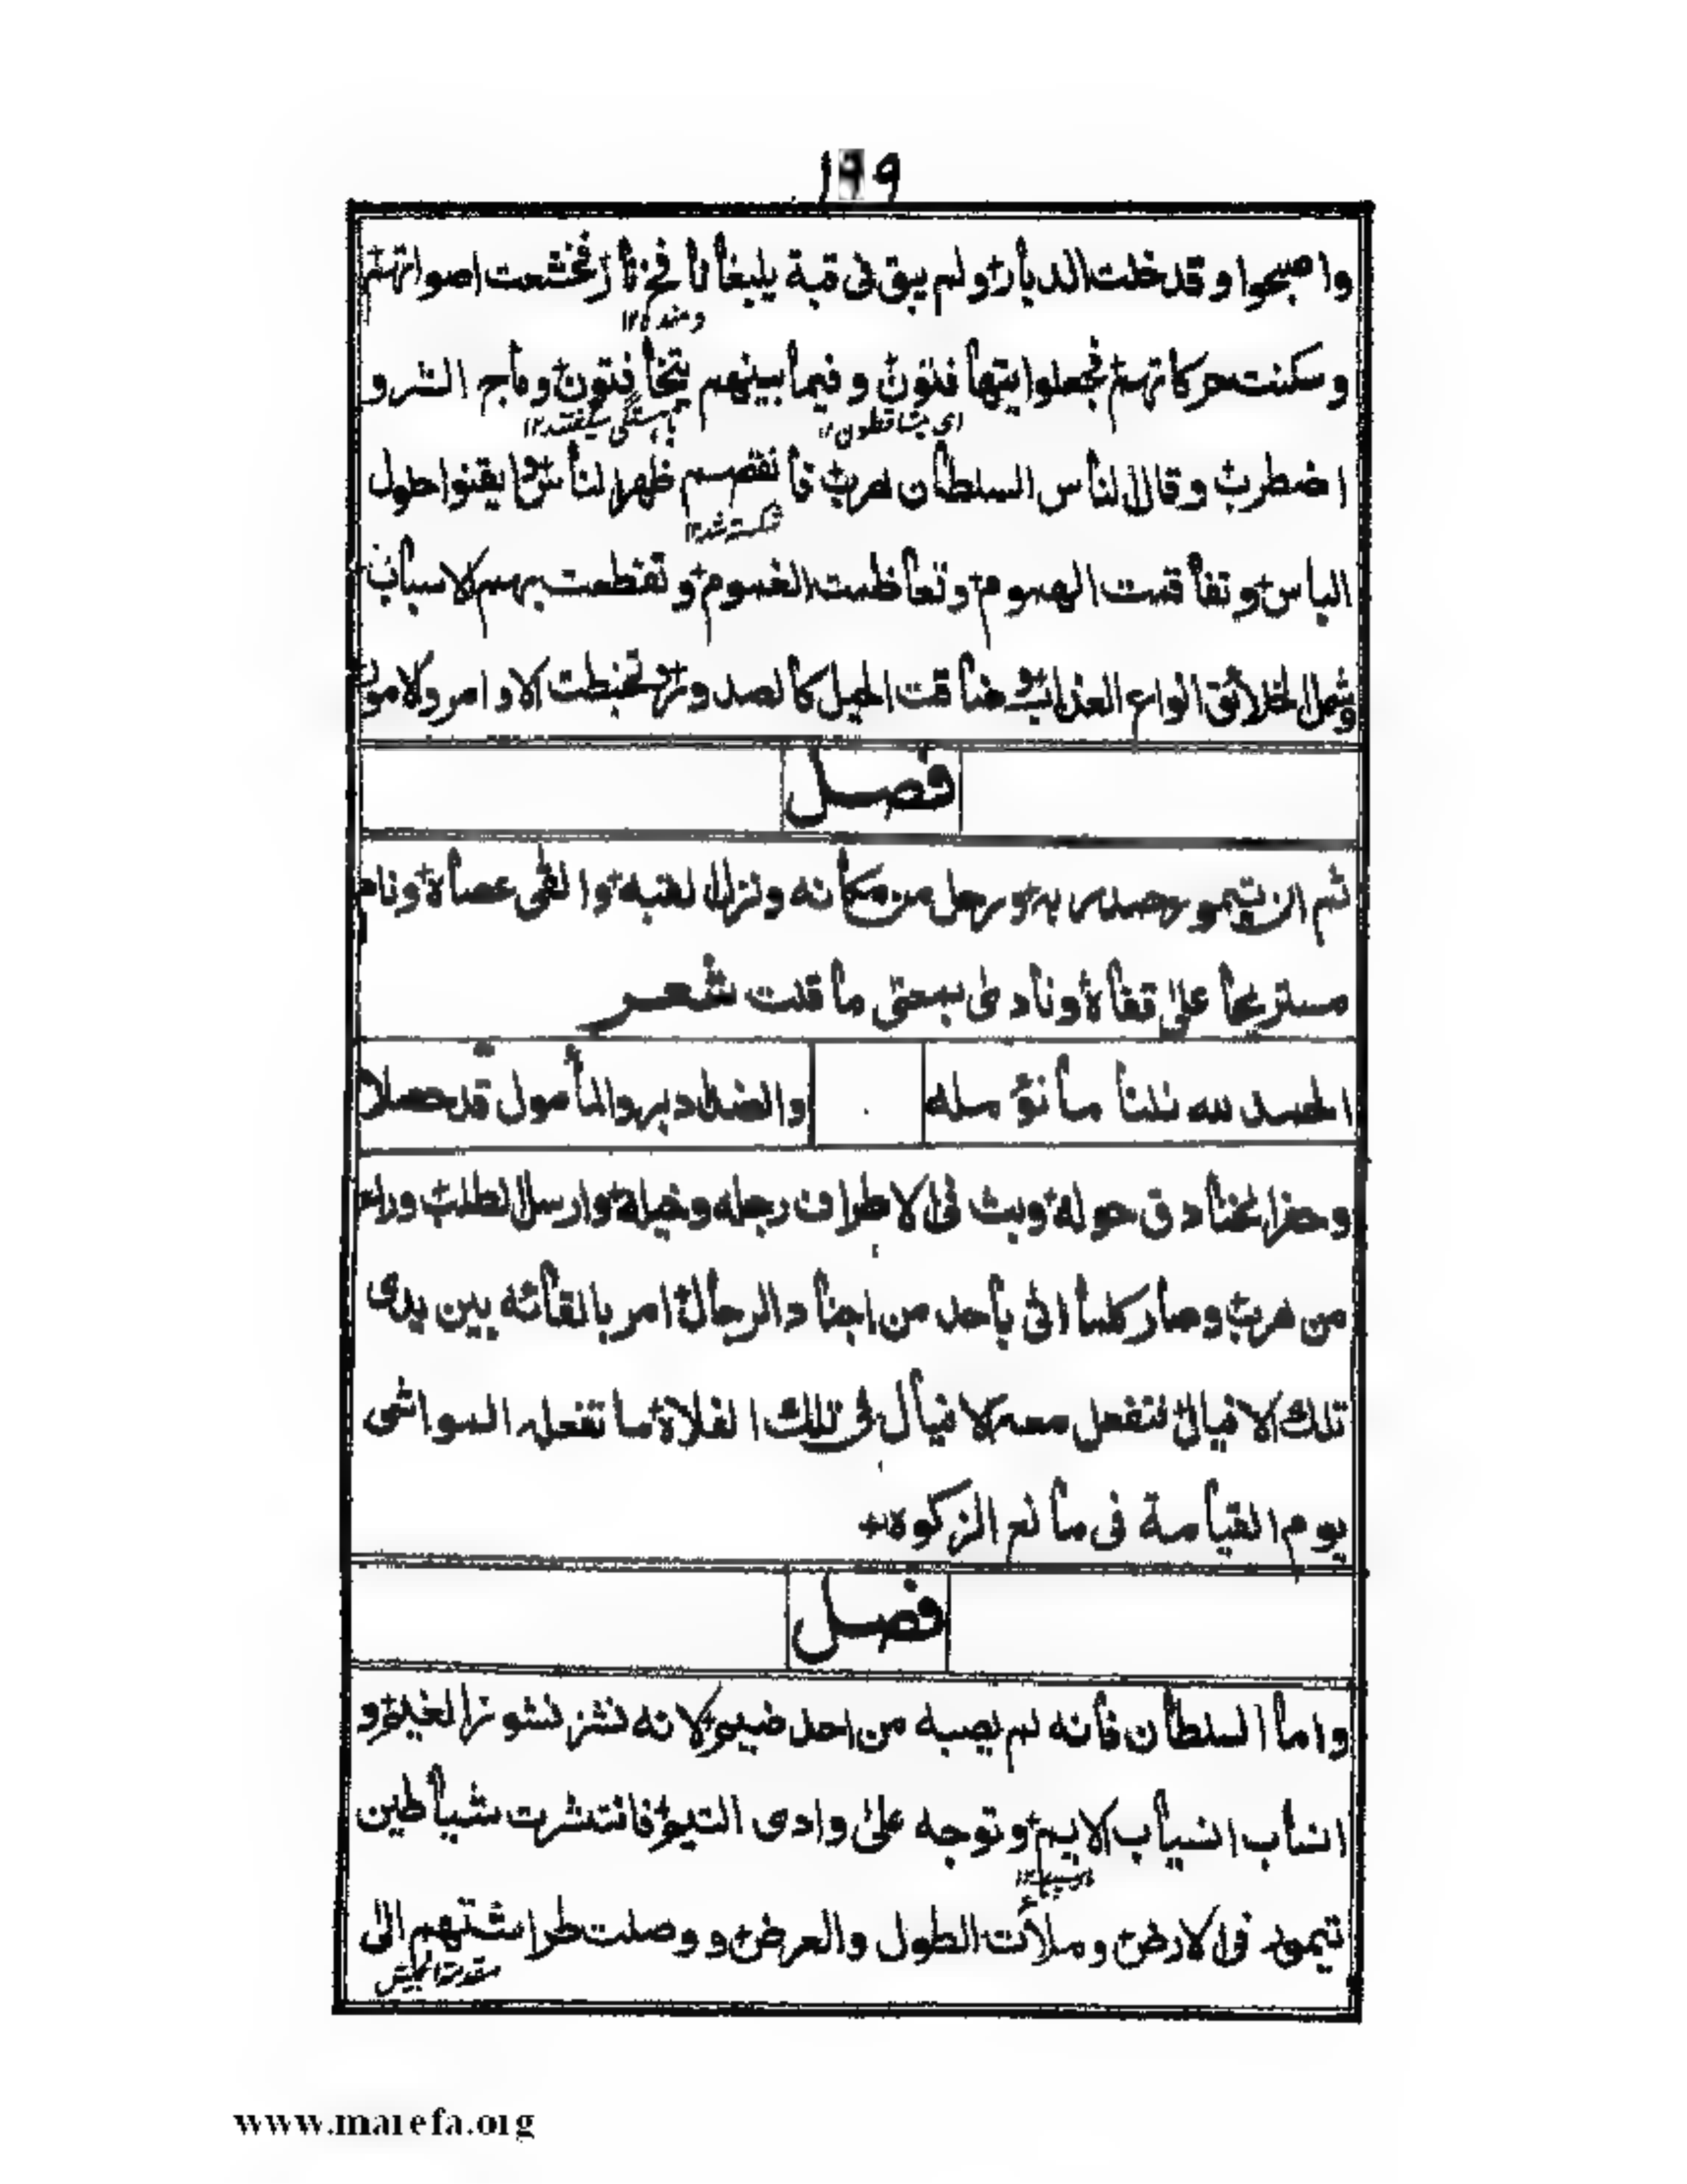 ١٩٩
واصبحوا وقد خلت الديار ولم يبق فى قبة يلبغا نافخ نار فخشعت اصواتهم
دمنده ١٢
وسكنت حركاتهم فجعلوا يتهافتون وفيما بينهم يتخافتون وماج الشر و
اى يتساقطون ١٢
اضطرب وقال الناس السلطان هرب فانقصم ظهر الناس وايقنوا حلول
شكسته شد ١٢
الباس وتفاقمت الهموم وتعاظمت الغموم وتقطعت بهم الاسباب
وشمل الخلائق انواع العذاب وضاقت الحيل كالصدور وتخبطت الاوامر والامور
فصل
ثم ان تيمور صدر به ورحل من مكانه ونزل القبه والقى عصاه ونام
مستريحا على قفاه ونادى بسحتى ما قلت شعر
الحمد لله نلنا ما نؤمله
والضد ادبر والمأمول قد حصلا
وحفر الخنادق حوله وبث فى الاطراف رجله وخيله وارسل الطلب وراء
من هرب وصار كلما اتى باحد من اجناد الرجال امر بالقائه بين يدى
تلك الافيال فتفعل معه الافيال فى تلك الفلاة ما تفعله المواشى
يوم القيامة فى مانع الزكوة
فصل
واما السلطان فانه لم يصبه من احد ضير لانه نشز نشوز الغير و
انساب انسياب الايم وتوجه على وادى التيم فانتشرت شياطين
تيمور فى الارض وملأت الطول والعرض و ووصلت طراشتهم الى
مقدمة الجيش
www.marefa.org